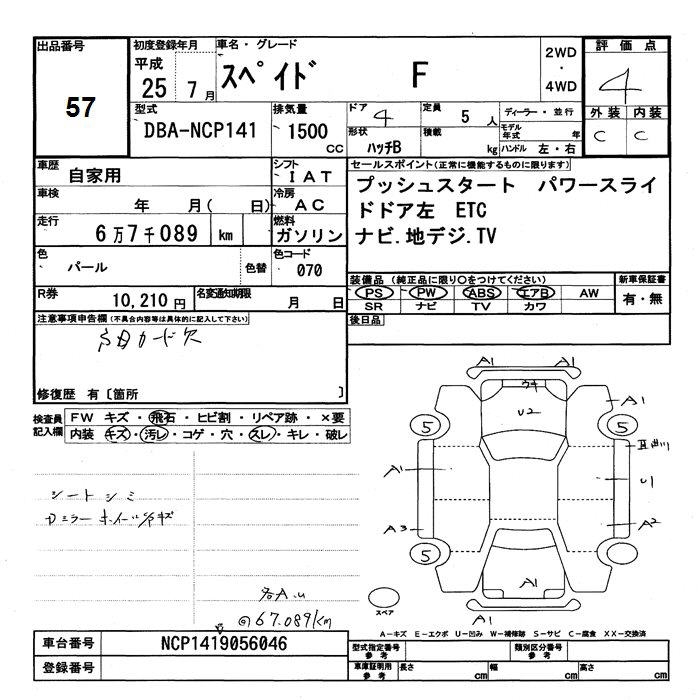 出品番号
57
初度登録年月
平成
25 7月
車名・グレード
スペイド F
2WD
・
4WD
評価点
4
外装 内装
C C
型式
DBA-NCP141
排気量
1500
CC
ドア
4
定員
5 人
ディーラー・並行
形状
ハッチB
積載
kg
モデル年式 年
ハンドル 左・右
車歴
自家用
シフト
I A T
車検
年 月( 日)
冷房
A C
走行
6万7千089 km
燃料
ガソリン
色
パール
色替
色コード
070
R券
10,210 円
名変通知期限
月 日
セールスポイント(正常に機能するものに限ります)
プッシュスタート パワースライ
ドドア左 ETC
ナビ.地デジ.TV
装備品 (純正品に限り○をつけてください)
PS PW ABS エアB AW
SR ナビ TV カワ
新車保証書
有・無
後日品
注意事項申告欄(不具合内容等は具体的に記入して下さい)
カード欠
修復歴 有〔箇所 〕
検査員
記入欄
FW キズ・飛石・ヒビ割・リペア跡・×要
内装 キズ・汚レ・コゲ・穴・スレ・キレ・破レ
シートシミ
Dミラーホイールキズ
各A.u
@67.089km
A1 A1
ウキ
U2
A1
5 5
A1
U1
A3
A2
5
A1
A1
スペア
A-キズ E-エクボ U-凹み W-補修跡 S-サビ C-腐食 XX-交換済
車台番号
NCP1419056046
登録番号
型式指定番号
参考
類別区分番号
参考
車庫証明用
参考
長さ cm 幅 cm 高さ cm